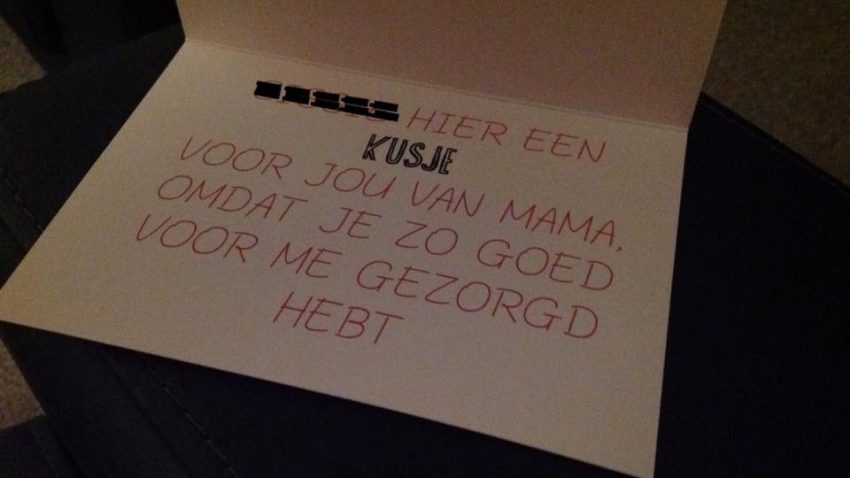 HIER EEN
KUSJE
VOOR JOU VAN MAMA,
OMDAT JE ZO GOED
VOOR ME GEZORGD
HEBT